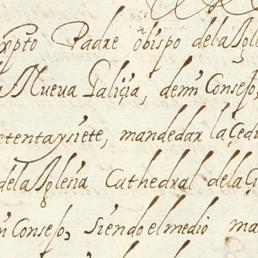 xpto Padre obispo dela Igle
Nueva Galiçia, demi Consejo,
etentaysiete, mandedar la Çedu
dela Iglesia Cathedral dela Çi
Consejo, siendo el medio ma